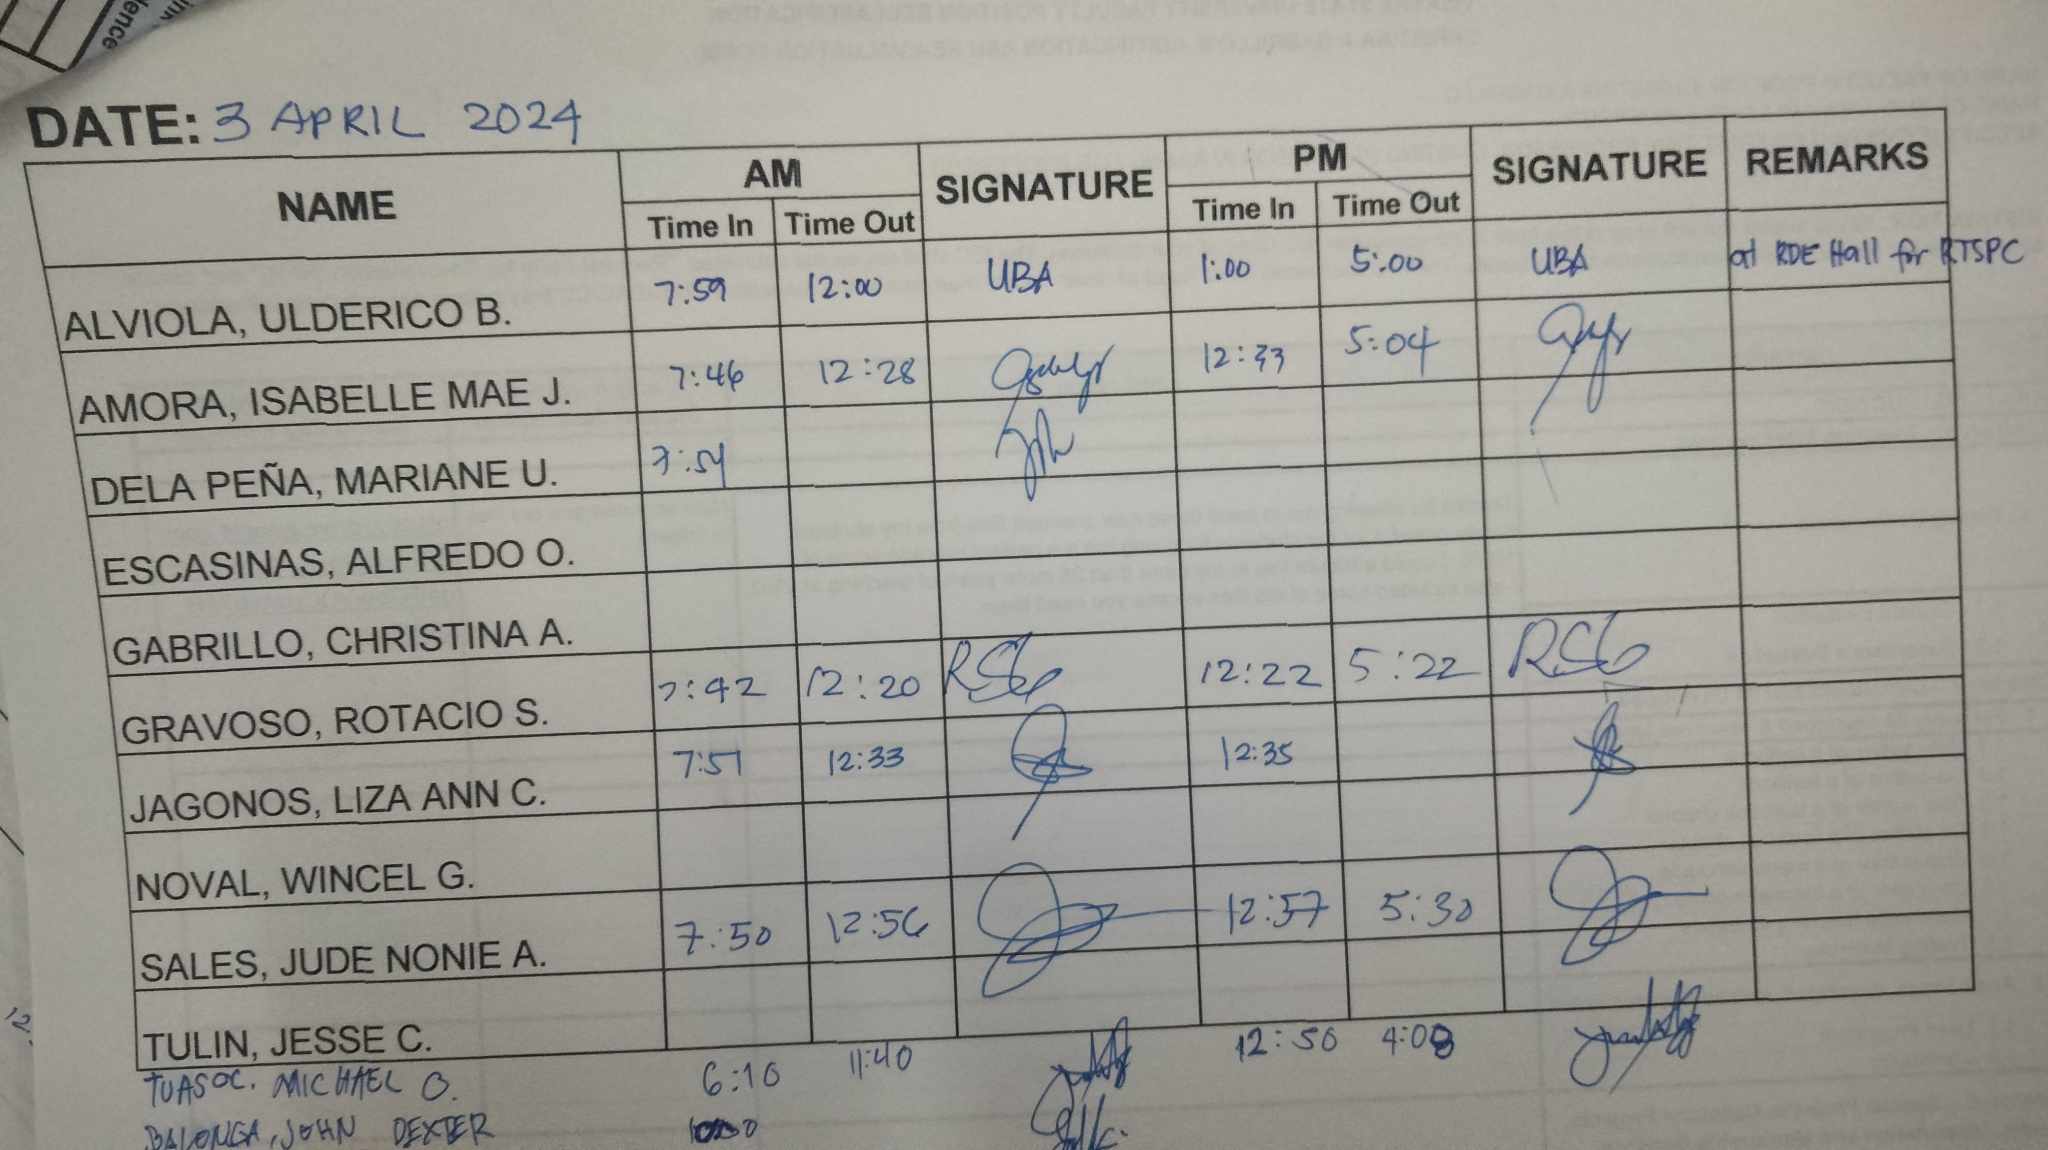 DATE: 3 APRIL 2024
NAME AM SIGNATURE PM SIGNATURE REMARKS
Time In Time Out Time In Time Out
ALVIOLA, ULDERICO B. 7:59 12:00 UBA 1:00 5:00 UBA at RDE Hall for RTSPC
AMORA, ISABELLE MAE J. 7:46 12:28 12:33 5:04
DELA PEÑA, MARIANE U. 7:54
ESCASINAS, ALFREDO O.
GABRILLO, CHRISTINA A.
GRAVOSO, ROTACIO S. 7:42 12:20 RSG 12:22 5:22 RSG
JAGONOS, LIZA ANN C. 7:51 12:33 12:35
NOVAL, WINCEL G.
SALES, JUDE NONIE A. 7:50 12:56 12:57 5:30
TULIN, JESSE C.
TUASOC. MICHAEL O. 6:10 11:40 12:50 4:08
BALONGA, JOHN DEXTER